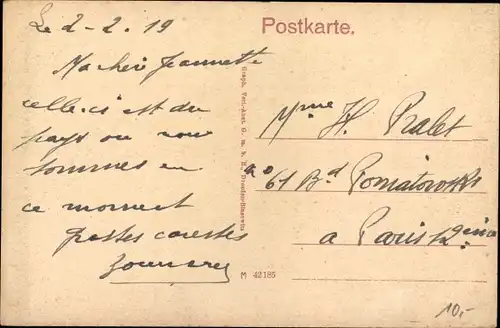 Le 2-2.19
Postkarte.
Ma chère Jeannette
celle-ci est du
pays ou nous
sommes en
ce moment
Mme H. Ralet
61 Bd Poniatowski
a Paris 12eme
Graph. Verl.-Anst. G. m. b. H., Dresden-Blasewitz
M 42185
10,-